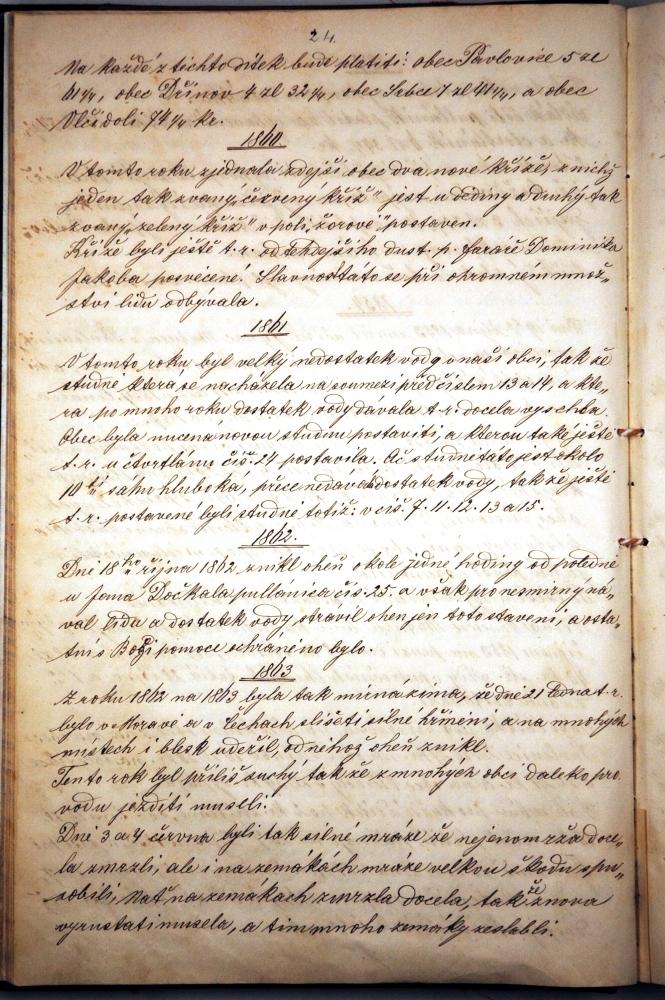 24.
Na každé z těchto dítek bude platiti: obec Pavlovice 5 zl
61 ¼, obec Dřínov 4 zl 32 ¼, obec Srbce 7 zl 41 ¼, a obec
Vlčídoli 74 ¼ kr.
1860
V tomto roku zjednala zdejší obec dva nové kříže, z nichž
jeden tak zvaný „červený kříž" jest u dědiny a druhý tak
zvaný „zelený kříž" v poli „žorově" postaven.
Kříže byli ještě t. r. od tehdejšího dust. p. faráře Dominika
Jakoba posvěcené. Slavnost tato se při ohromném množ„
ství lidu odbývala.
1861
V tomto roku byl velký nedostatek vody v naší obci, tak že
studně která se nacházela na soumezí před číslem 13 a 14, a kte„
ra po mnoho roku dostatek vody dávala t. r. docela vyschla.
Obec byla nucená novou studnu postaviti, a kterou také ještě
t. r. u čtvrtlánu čís. 24 postavila. Ač studně tato jest okolo
10 ti sáhu hluboká, přece nedává dostatek vody, tak že ještě
t. r. postavené byli studně totiž: v čís. 7. 11. 12. 13 a 15.
1862.
Dne 18 ho října 1862 znikl oheň okolo jedné hodiny od poledne
u Jana Dočkala pullánika čís. 25. a však pro nesmírný ná„
val lidu a dostatek vody strávil oheň jen toto stavení, a osta„
tní s Boží pomocí ochráněno bylo.
1863
Z roku 1862 na 1863 byla tak mírná zima, že dne 21 ledna t. r.
bylo v Moravě a v Čechach slišeti silné hřímění, a na mnohých
místech i blesk udeřil, od něhož oheň znikl.
Tento rok byl příliš suchý tak že z mnohých obcí daleko pro
vodu jezditi museli.
Dne 3 a 4 června byli tak silné mráze že nejenom rža doce„
la zmrzli, ale i na zemákách mráze velkou škodu spu„
sobili, Nať na zemákach zmrzla docela, tak že znova
vyrustati musela, a tím mnoho zemáky zeslabli.